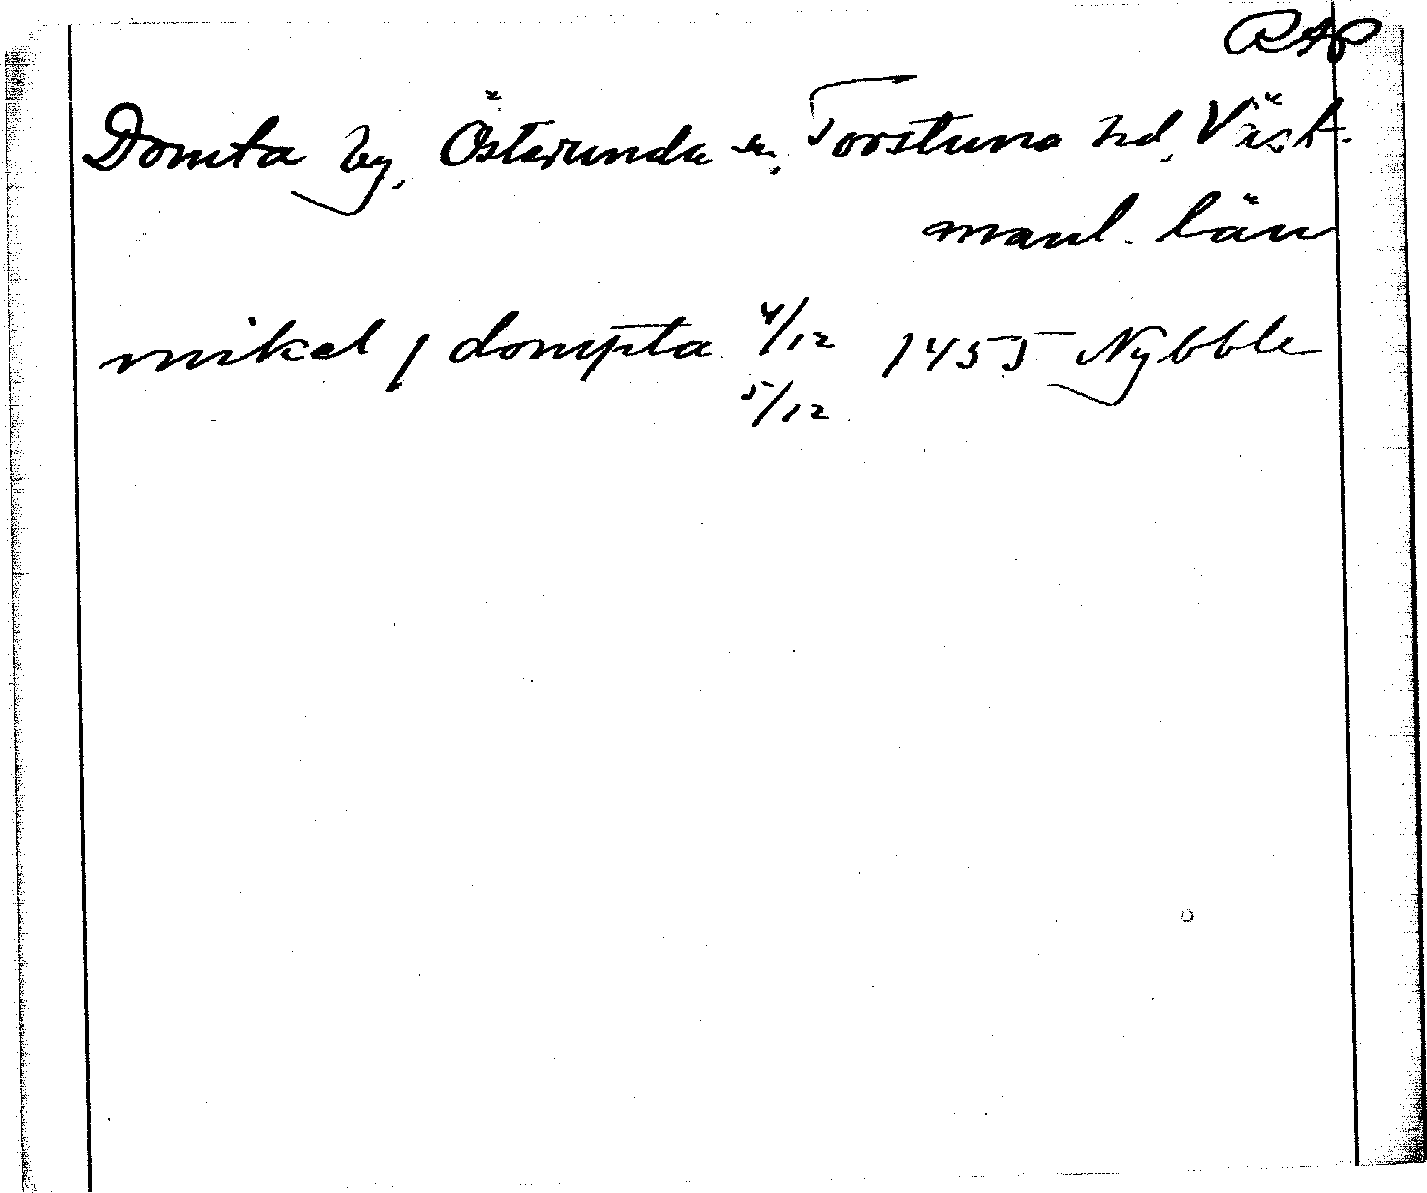 RAP
Domta by, Österunda sn, Torstuna hd, Väst-
manl. län
mikel j dompta 4/12 1455 Nybble
5/12